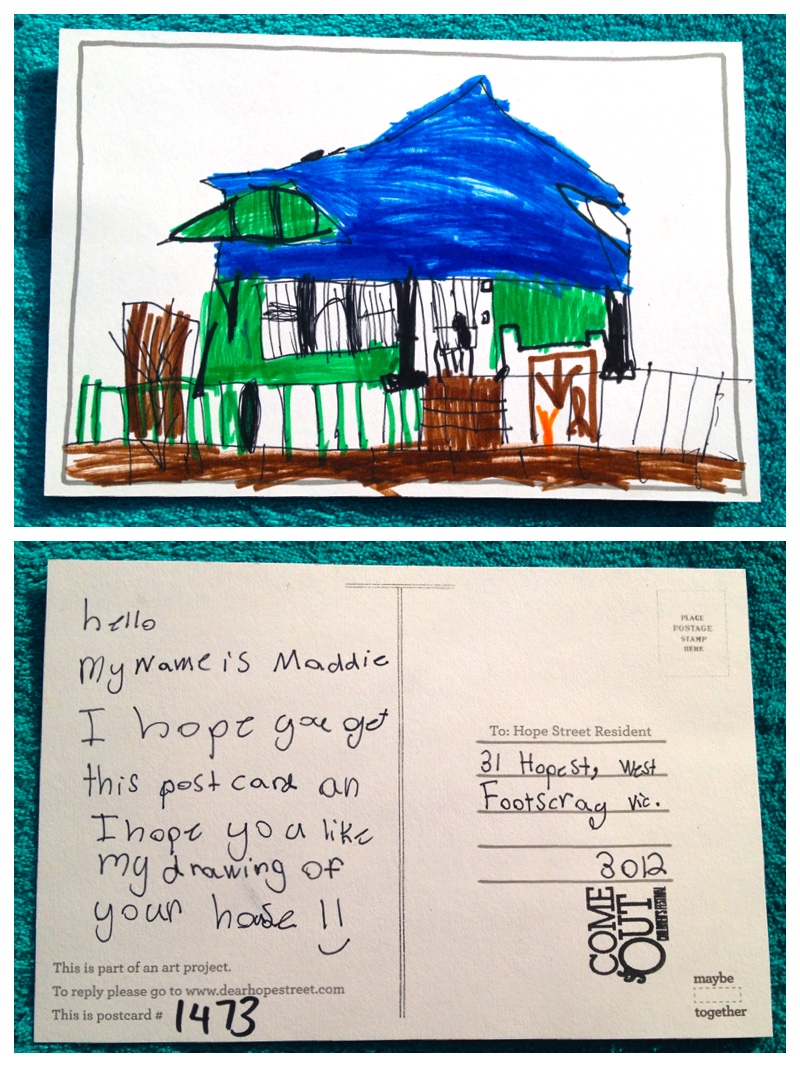 hello
My Name is Maddie
I hope you get
this post card an
I hope you like
my drawing of
your house !!
This is part of an art project.
To reply please go to www.dearhopestreet.com
This is postcard # 1473
PLACE
POSTAGE
STAMP
HERE
To: Hope Street Resident
31 Hope st, West
Footscray Vic.
3012
COME
OUT
CHILDREN'S FESTIVAL
maybe
together